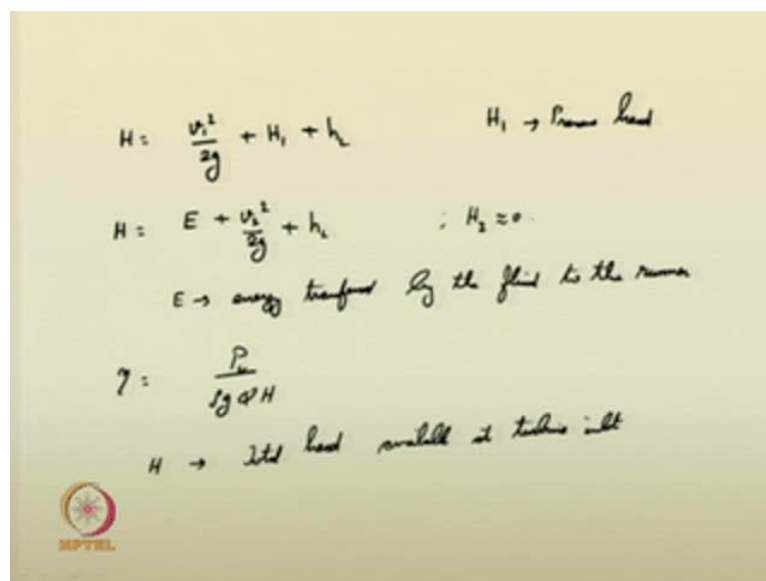 H = v₁²/2g + H₁ + h_L H₁ → Pressure head
H = E + v₂²/2g + h_L ; H₂ ≈ 0.
E → energy transferred by the fluid to the runner
η = P_u/ρgQH
H → Total head available at turbine inlet
NPTEL